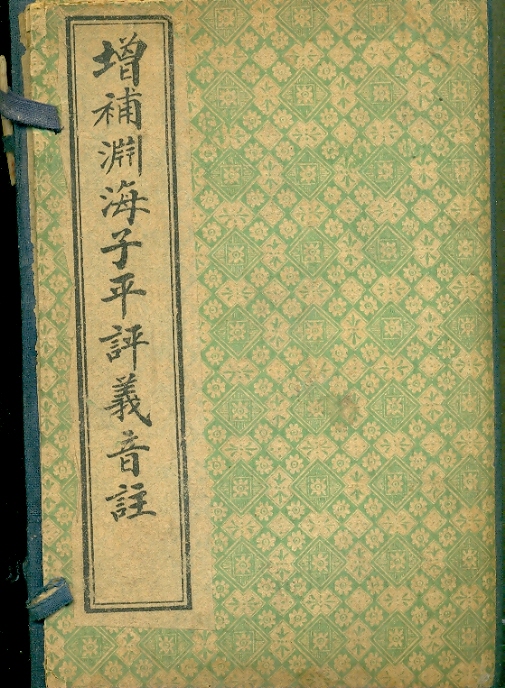 增補淵海子平評義音註